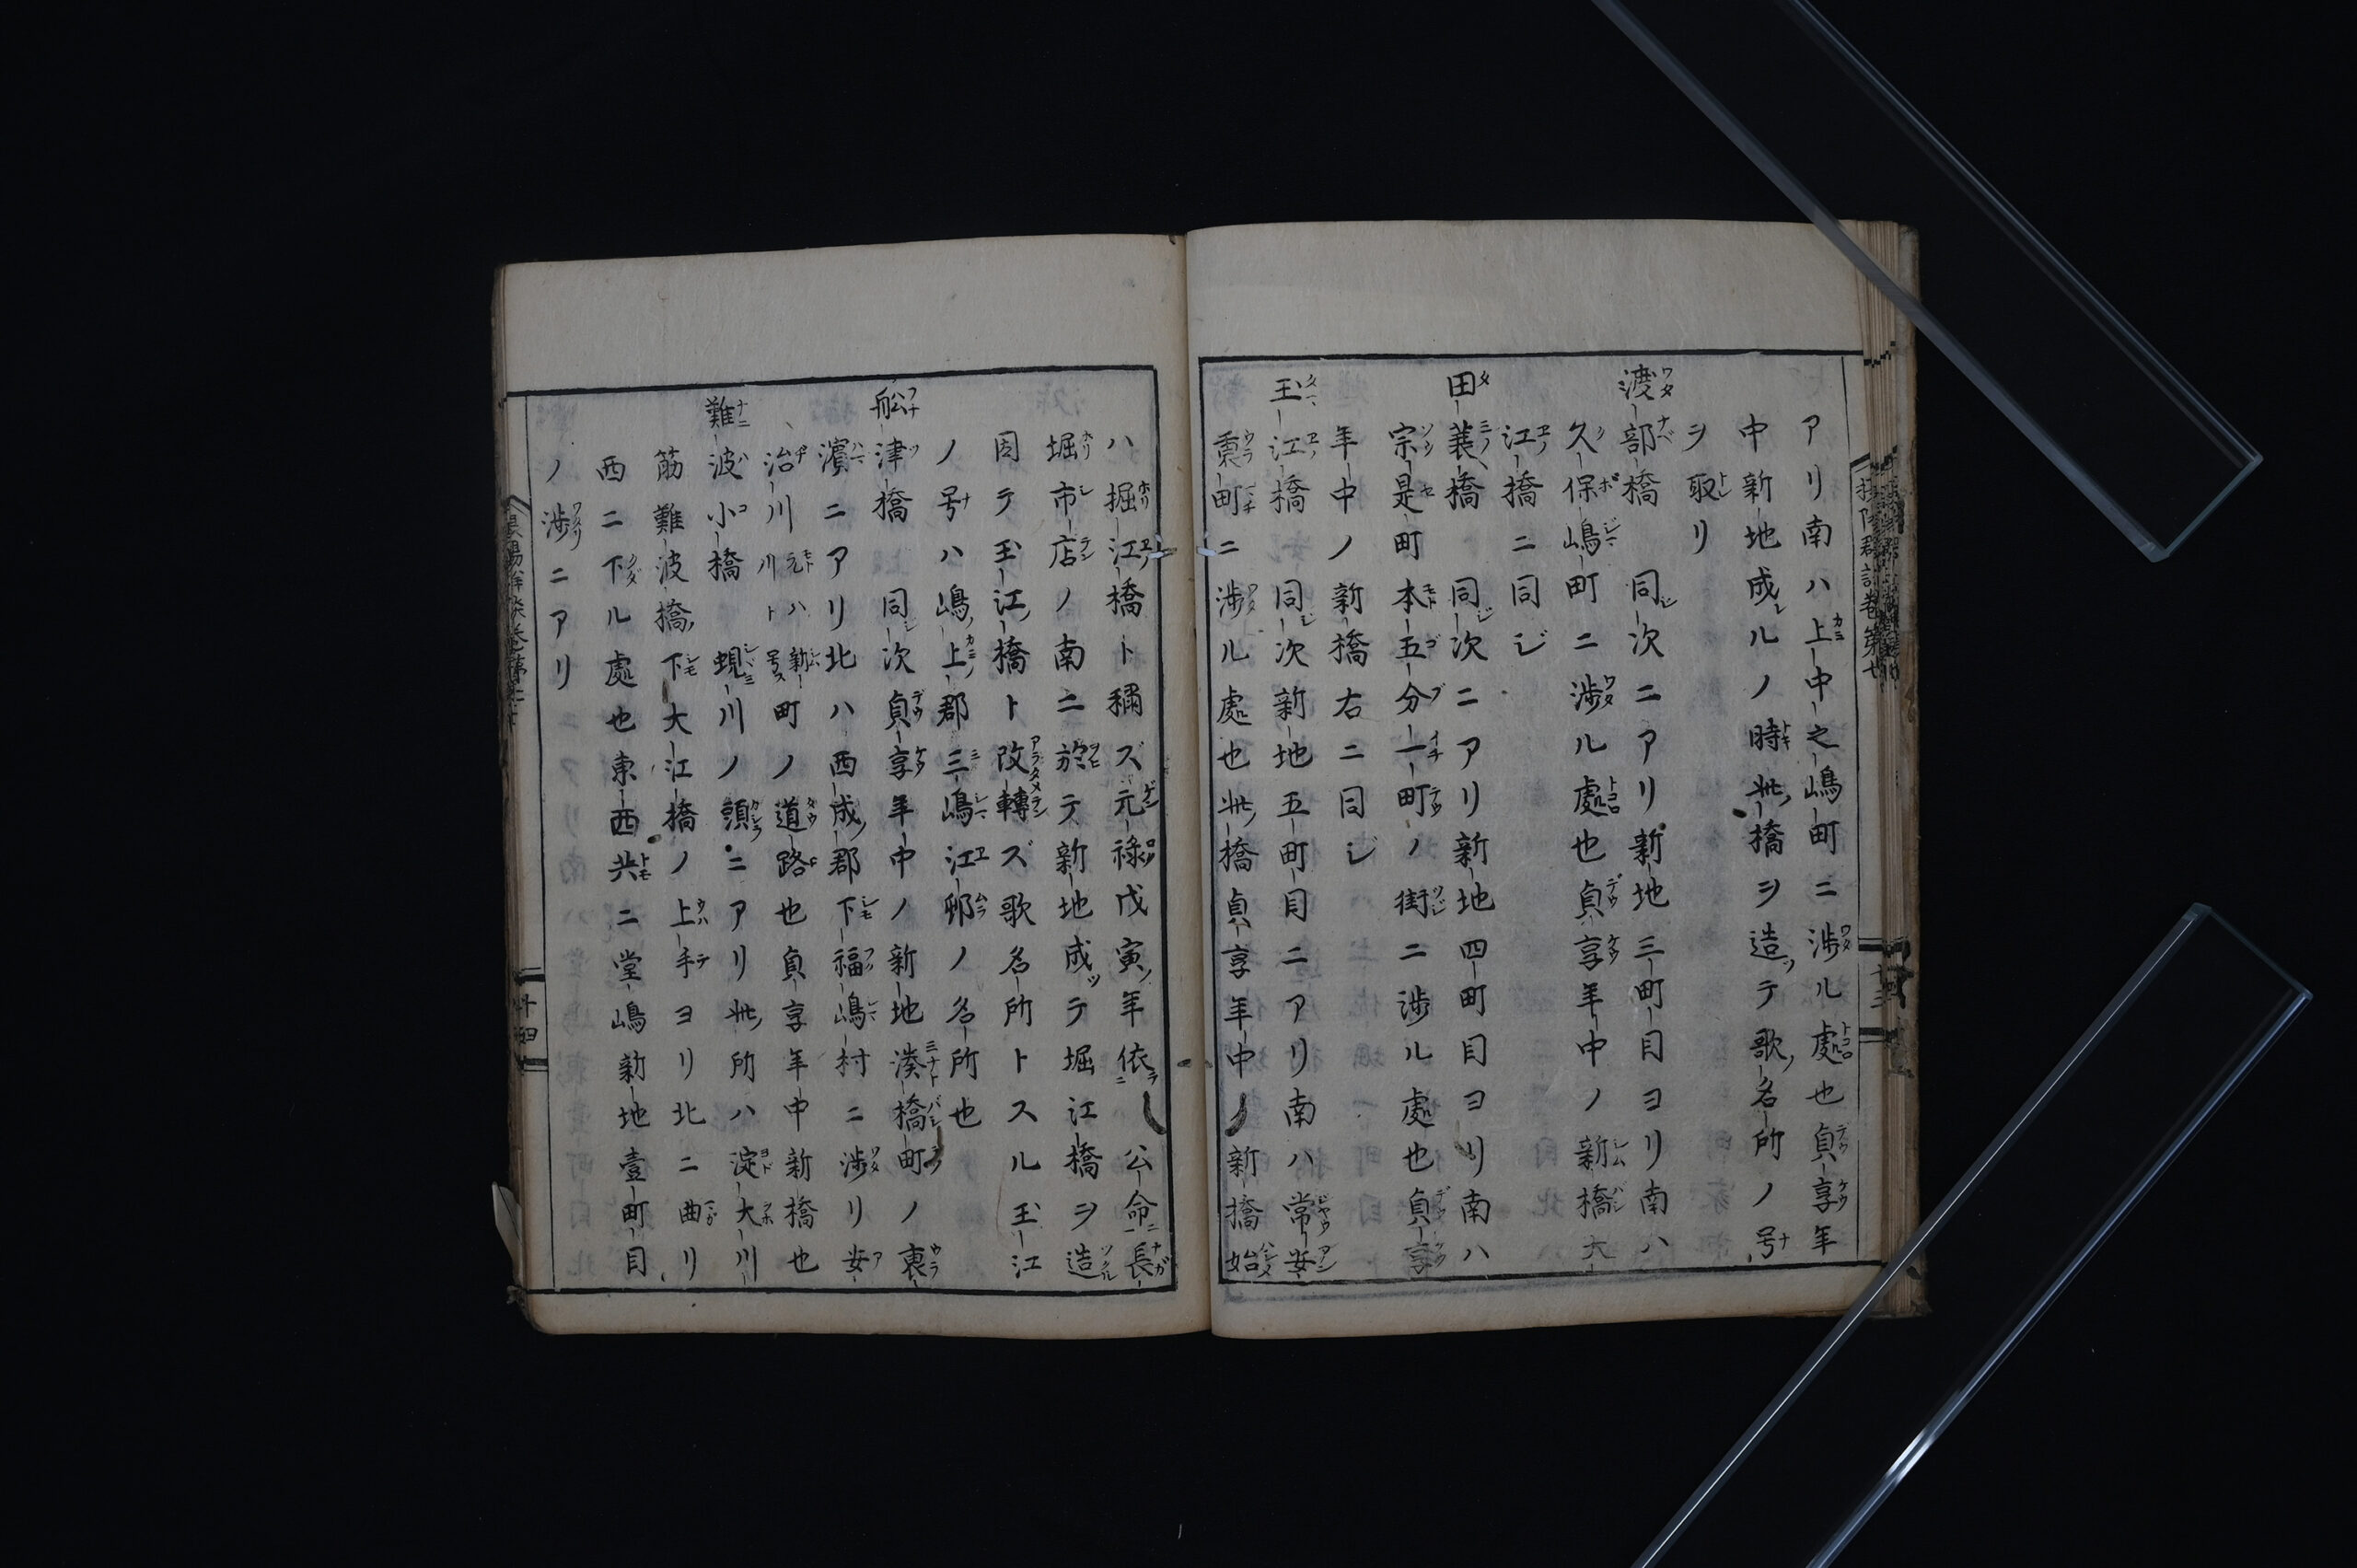 アリ南ハ上中之嶋町ニ渉ル處也貞享年
中新地成ルノ時此橋ヲ造テ歌名所ノ号
ヲ取リ
渡部橋 同次ニアリ新地三町目ヨリ南ハ
久保嶋町ニ渉ル處也貞享年中ノ新橋大
江橋ニ同じ
田蓑橋 同次ニアリ新地四町目ヨリ南ハ
宗是町本五分一町ノ街ニ渉ル處也貞享
年中ノ新橋右ニ同ジ
玉江橋 同次新地五町目ニアリ南ハ常安
裏町ニ渉ル處也此橋貞享年中ノ新橋始
ハ掘江橋ト稱ズ元禄戊寅年依 公命長
堀市店ノ南ニ於テ新地成テ堀江橋ヲ造
因テ玉江橋ト改轉ズ歌名所トスル玉江
ノ号ハ嶋上郡三嶋江邨ノ名所也
舩津橋 同次貞享年中ノ新地湊橋町ノ裏
濱ニアリ北ハ西成郡下福嶋村ニ渉リ安
治川元ハ新川ト号ス町ノ道路也貞享年中新橋也
難波小橋 蜆川ノ頭ニアリ此所ハ淀大川
筋難波橋下大江橋ノ上手ヨリ北ニ曲リ
西ニ下ル處也東西共ニ堂嶋新地壹町目
ノ渉ニアリ